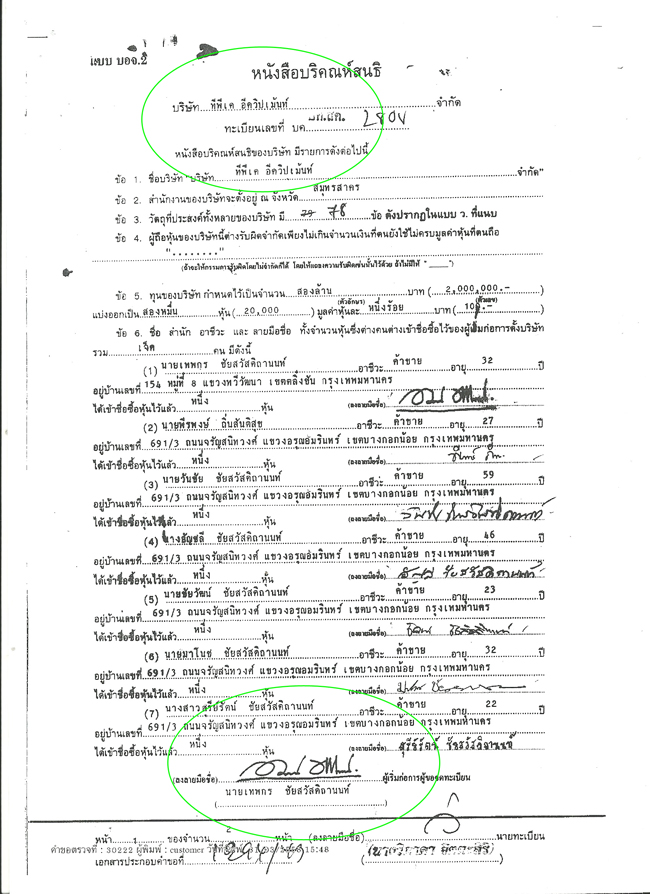 แบบ บอจ.2
หนังสือบริคณห์สนธิ
บริษัท ทีพีเค อีควิปเม้นท์ จำกัด
ทะเบียนเลขที่ บค.
หนังสือบริคณห์สนธิของบริษัท มีรายการดังต่อไปนี้
ข้อ 1. ชื่อบริษัท "บริษัท ทีพีเค อีควิปเม้นท์ จำกัด"
ข้อ 2. สำนักงานของบริษัทจะตั้งอยู่ ณ จังหวัด สมุทรสาคร
ข้อ 3. วัตถุที่ประสงค์ทั้งหลายของบริษัท มี 78 ข้อ ดังปรากฏในแบบ ว. ที่แนบ
ข้อ 4. ผู้ถือหุ้นของบริษัทนี้ต่างรับผิดจำกัดเพียงไม่เกินจำนวนเงินที่ตนยังใช้ไม่ครบมูลค่าหุ้นที่ตนถือ
"........"
(ถ้าจะให้กรรมการรับผิดโดยไม่จำกัดก็ได้ โดยให้แถลงความรับผิดเช่นนั้นไว้ด้วย ถ้าไม่มีให้ "____")
ข้อ 5. ทุนของบริษัท กำหนดไว้เป็นจำนวน สองล้าน บาท (2,000,000.-)
(ตัวอักษร) (ตัวเลข)
แบ่งออกเป็น สองหมื่น หุ้น (20,000) มูลค่าหุ้นละ หนึ่งร้อย บาท (100.-)
ข้อ 6. ชื่อ สำนัก อาชีวะ และ ลายมือชื่อ ทั้งจำนวนหุ้นซึ่งต่างคนต่างเข้าชื่อซื้อไว้ของผู้เริ่มก่อการตั้งบริษัท
รวม เจ็ด คน มีดังนี้
(1) นายเทพกร ชัยสวัสดิถานนท์ อาชีวะ ค้าขาย อายุ 32 ปี
อยู่บ้านเลขที่ 154 หมู่ที่ 8 แขวงทวีวัฒนา เขตตลิ่งชัน กรุงเทพมหานคร
ได้เข้าชื่อซื้อหุ้นไว้แล้ว หนึ่ง หุ้น (ลงลายมือชื่อ)
(2) นายพีรพงษ์ ถิ่นสันติสุข อาชีวะ ค้าขาย อายุ 27 ปี
อยู่บ้านเลขที่ 691/3 ถนนจรัญสนิทวงศ์ แขวงอรุณอัมรินทร์ เขตบางกอกน้อย กรุงเทพมหานคร
ได้เข้าชื่อซื้อหุ้นไว้แล้ว หนึ่ง หุ้น (ลงลายมือชื่อ)
(3) นายวันชัย ชัยสวัสดิถานนท์ อาชีวะ ค้าขาย อายุ 59 ปี
อยู่บ้านเลขที่ 691/3 ถนนจรัญสนิทวงศ์ แขวงอรุณอัมรินทร์ เขตบางกอกน้อย กรุงเทพมหานคร
ได้เข้าชื่อซื้อหุ้นไว้แล้ว หนึ่ง หุ้น (ลงลายมือชื่อ)
(4) นางอัญชลี ชัยสวัสดิถานนท์ อาชีวะ ค้าขาย อายุ 46 ปี
อยู่บ้านเลขที่ 691/3 ถนนจรัญสนิทวงศ์ แขวงอรุณอัมรินทร์ เขตบางกอกน้อย กรุงเทพมหานคร
ได้เข้าชื่อซื้อหุ้นไว้แล้ว หนึ่ง หุ้น (ลงลายมือชื่อ)
(5) นายชัยวัฒน์ ชัยสวัสดิถานนท์ อาชีวะ ค้าขาย อายุ 23 ปี
อยู่บ้านเลขที่ 691/3 ถนนจรัญสนิทวงศ์ แขวงอรุณอัมรินทร์ เขตบางกอกน้อย กรุงเทพมหานคร
ได้เข้าชื่อซื้อหุ้นไว้แล้ว หนึ่ง หุ้น (ลงลายมือชื่อ)
(6) นายมาโนช ชัยสวัสดิถานนท์ อาชีวะ ค้าขาย อายุ 32 ปี
อยู่บ้านเลขที่ 691/3 ถนนจรัญสนิทวงศ์ แขวงอรุณอัมรินทร์ เขตบางกอกน้อย กรุงเทพมหานคร
ได้เข้าชื่อซื้อหุ้นไว้แล้ว หนึ่ง หุ้น (ลงลายมือชื่อ)
(7) นางสาวสุรีย์รัตน์ ชัยสวัสดิถานนท์ อาชีวะ ค้าขาย อายุ 22 ปี
อยู่บ้านเลขที่ 691/3 ถนนจรัญสนิทวงศ์ แขวงอรุณอัมรินทร์ เขตบางกอกน้อย กรุงเทพมหานคร
ได้เข้าชื่อซื้อหุ้นไว้แล้ว หนึ่ง หุ้น (ลงลายมือชื่อ) สุรีย์รัตน์ ชัยสวัสดิถานนท์
(ลงลายมือชื่อ) ผู้เริ่มก่อการผู้ขอจดทะเบียน
นายเทพกร ชัยสวัสดิถานนท์
หน้า 1 ของจำนวน 2 หน้า (ลงลายมือชื่อ) นายทะเบียน
คำขอตรวจที่ : 30222 ผู้พิมพ์ : customer 15:48
เอกสารประกอบคำขอที่